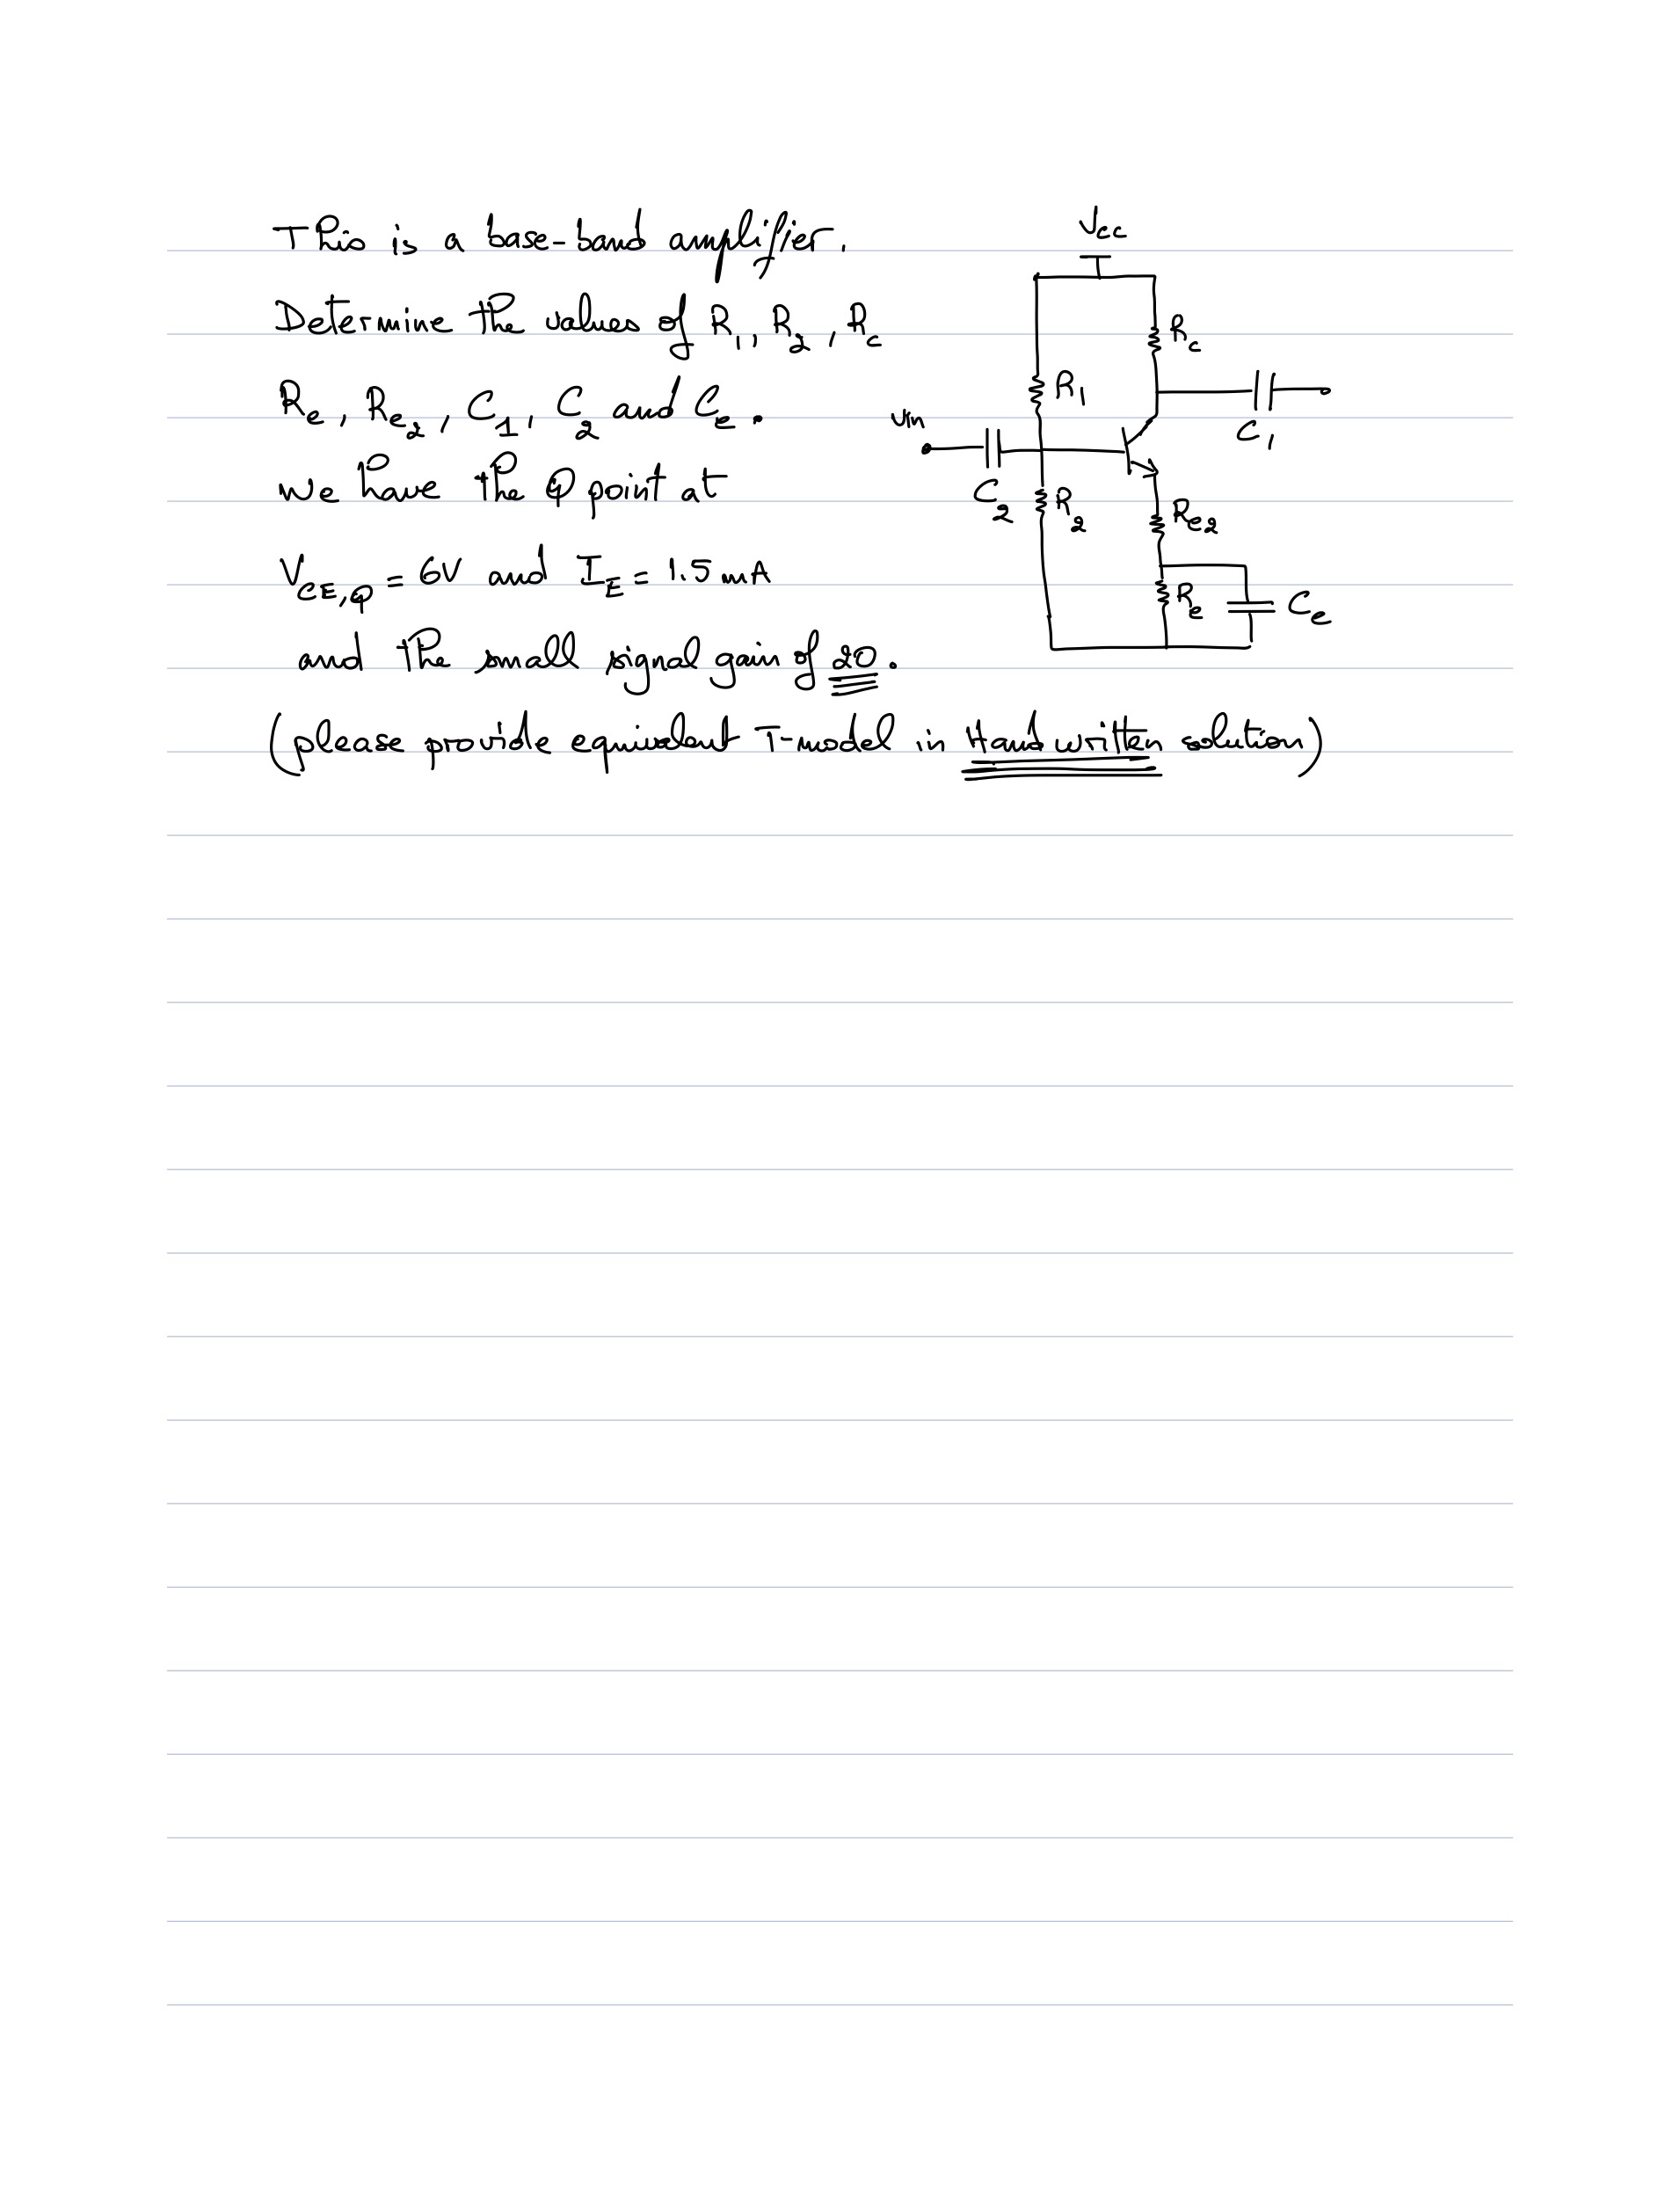 This is a base-band amplifier.
Determine the values of R1, R2, Rc
Re, Re2, C1, C2 and Ce.
we have the Q point at
VCE,Q = 6V and IE = 1.5 mA
and the small signal gain of 20.
(please provide equivalent T-model in Handwritten solution)
Vcc
Rc
R1
C1
Vin
C2
R2
Re2
Re
Ce